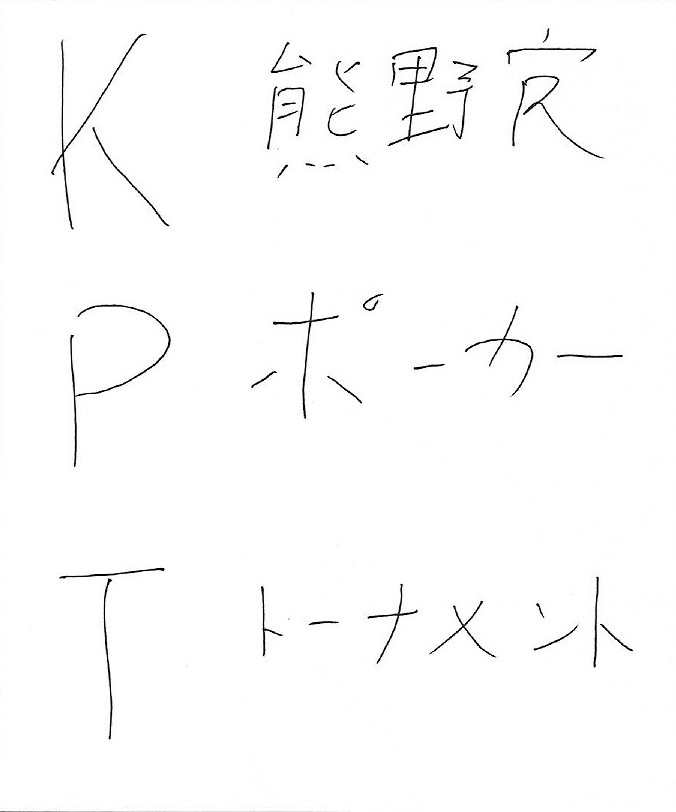 K 熊野寮
P ポーカー
T トーナメント